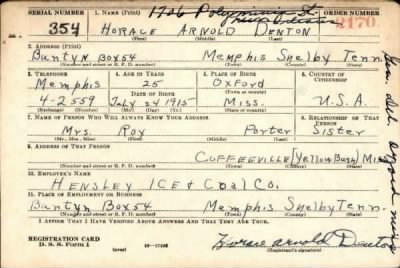 SERIAL NUMBER 1. NAME (Print) 1706 Polymnia St. ORDER NUMBER
New Orleans
354 HORACE ARNOLD DENTON 2170
(First) (Middle) (Last)
2. ADDRESS (Print)
Buntyn Box 54 Memphis Shelby Tenn.
(Number and street or R. F. D. number) (Town) (County) (State)
3. TELEPHONE 4. AGE IN YEARS 5. PLACE OF BIRTH 6. COUNTRY OF CITIZENSHIP
Memphis 25 Oxford
DATE OF BIRTH (Town or county)
4-2559 July 24 1915 Miss. U.S.A.
(Exchange) (Number) (Mo.) (Day) (Yr.) (State or country)
7. NAME OF PERSON WHO WILL ALWAYS KNOW YOUR ADDRESS 8. RELATIONSHIP OF THAT PERSON
Mrs. Roy Porter Sister
(Mr., Mrs., Miss) (First) (Middle) (Last)
9. ADDRESS OF THAT PERSON
Coffeeville (Yellow Bush) Miss
(Number and street or R. F. D. number) (Town) (County) (State)
10. EMPLOYER'S NAME
HENSLEY ICE & Coal Co.
11. PLACE OF EMPLOYMENT OR BUSINESS
Buntyn Box 54 Memphis Shelby Tenn.
(Number and street or R. F. D. number) (Town) (County) (State)
I AFFIRM THAT I HAVE VERIFIED ABOVE ANSWERS AND THAT THEY ARE TRUE.
REGISTRATION CARD
D. S. S. FORM 1 (over) 16-17105 Horace Arnold Denton
(Registrant's signature)
Gen. Del. Oxford Miss